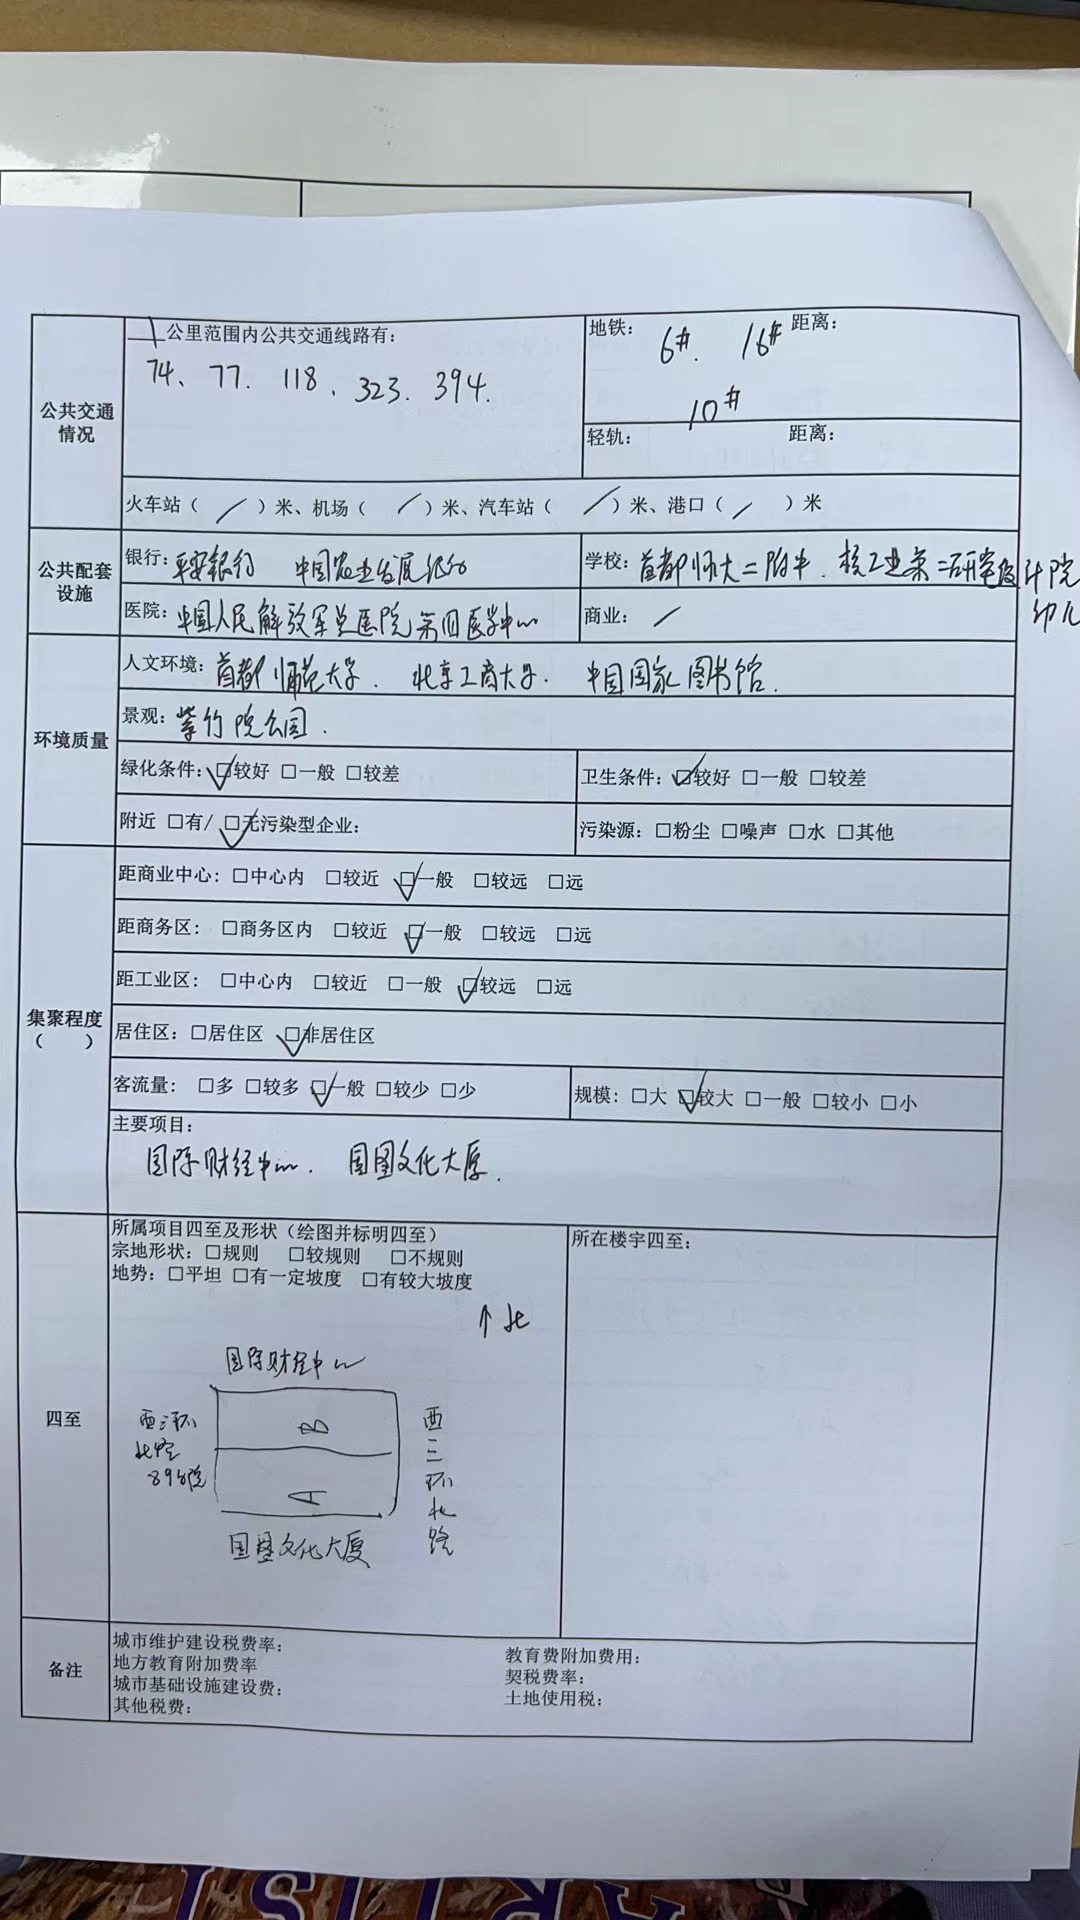 1 公里范围内公共交通线路有：
74、77、118、323、394.
地铁： 6#、 16# 距离：
10#
公共交通
情况
轻轨： 距离：
火车站（ / ）米、机场（ / ）米、汽车站（ / ）米、港口（ / ）米
公共配套
设施
银行：平安银行 中国农业发展银行
学校：首都师大二附中、核工业第二研究设计院
幼儿
医院：中国人民解放军总医院第四医学中心
商业： /
环境质量
人文环境：首都师范大学、北京工商大学、中国国家图书馆.
景观：紫竹院公园.
绿化条件：☑较好 □一般 □较差
卫生条件：☑较好 □一般 □较差
附近 □有/ ☑无污染型企业：
污染源：□粉尘 □噪声 □水 □其他
集聚程度
（ ）
距商业中心：□中心内 □较近 ☑一般 □较远 □远
距商务区： □商务区内 □较近 ☑一般 □较远 □远
距工业区： □中心内 □较近 □一般 ☑较远 □远
居住区：□居住区 ☑非居住区
客流量： □多 □较多 ☑一般 □较少 □少
规模：□大 ☑较大 □一般 □较小 □小
主要项目：
国际财经中心、国图文化大厦.
四至
所属项目四至及形状（绘图并标明四至）
宗地形状：□规则 □较规则 □不规则
地势：□平坦 □有一定坡度 □有较大坡度
↑北
国际财经中心
西三环
北路
89号院
B
A
西三环北路
国图文化大厦
所在楼宇四至：
备注
城市维护建设税费率：
地方教育附加费率
城市基础设施建设费：
其他税费：
教育费附加费用：
契税费率：
土地使用税：